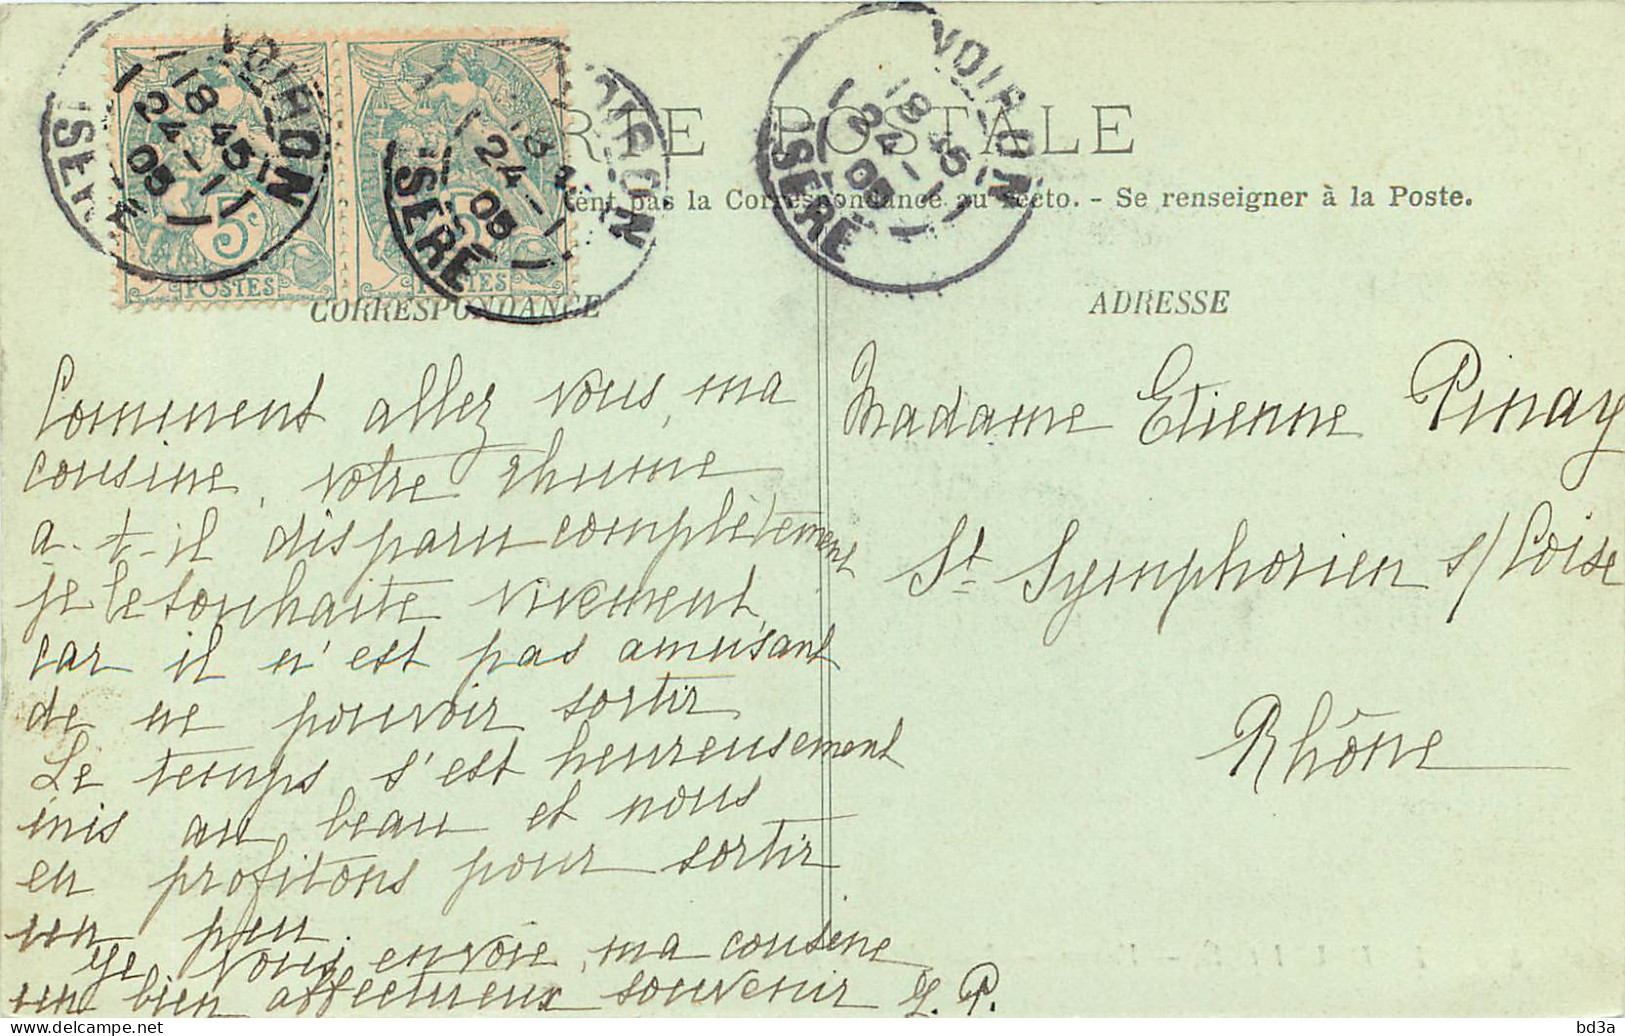 CARTE POSTALE
pas la Correspondance au recto. - Se renseigner à la Poste.
VOIRON
18 45
24 - 1
05
ISÈRE
5c
POSTES
VOIRON
24 - 1
05
ISÈRE
POSTES
VOIRON
18 45
24 - 1
05
ISÈRE
CORRESPONDANCE
Comment allez vous, ma
cousine, votre rhume
a-t-il disparu complètement
je le souhaite vivement,
car il n'est pas amusant
de ne pouvoir sortir
Le temps s'est heureusement
mis au beau et nous
en profitons pour sortir
un peu.
Je vous envoie, ma cousine
un bien affectueux souvenir
P.
ADRESSE
Madame Etienne Pinay
St Symphorien s/ Coise
Rhône
bd3a